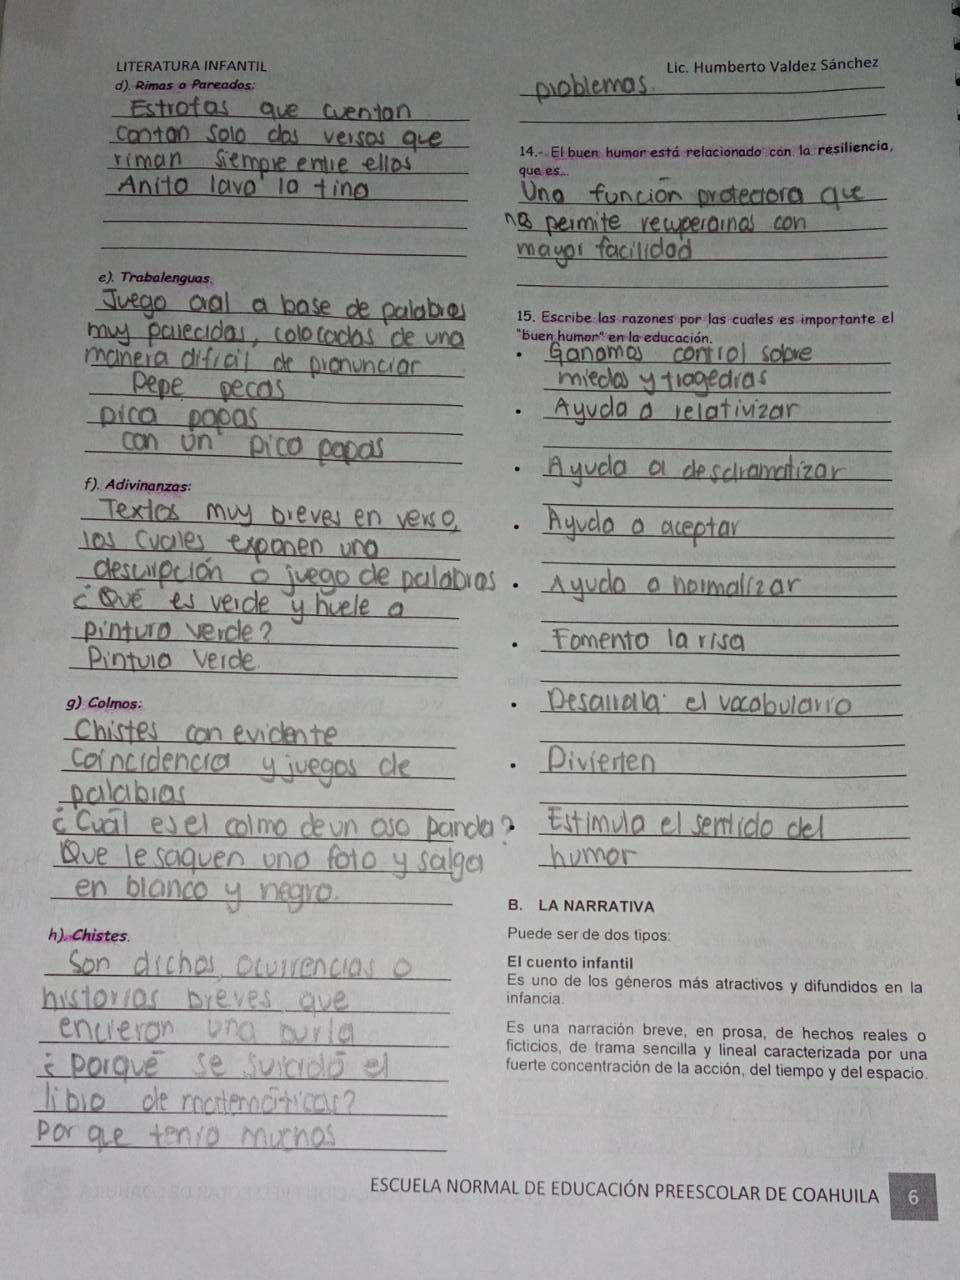 LITERATURA INFANTIL
d). Rimas o Pareados:
Estrofas que cuentan
contan solo dos versos que
riman siempre entre ellos
Anita lava la tina
e). Trabalenguas.
Juego oral a base de palabras
muy parecidas, colocadas de una
manera dificil de pronunciar
Pepe pecas
pica papas
con un pico papas
f). Adivinanzas:
Textos muy breves en verso,
los cuales exponen una
descripción o juego de palabras
¿Qué es verde y huele a
pintura verde?
Pintura verde.
g) Colmos:
Chistes con evidente
Coincidencia y juegos de
palabras
¿Cuál es el colmo de un oso panda?
Que le saquen una foto y salga
en blanco y negro.
h). Chistes.
Son dichos, ocurrencias o
historias breves que
encieran una burla
¿porqué se suicidó el
libro de matemáticas?
Por que tenia muchos
Lic. Humberto Valdez Sánchez
problemas.
14.- El buen humor está relacionado con la resiliencia,
que es...
Una función protectora que
nos permite recuperarnos con
mayor facilidad
15. Escribe las razones por las cuales es importante el
"buen humor" en la educación.
• Ganamos control sobre
miedos y tragedias
• Ayuda a relativizar
• Ayuda a desdramatizar
• Ayuda a aceptar
• Ayuda a normalizar
• Fomenta la risa
• Desarrolla el vocabulario
• Divierten
• Estimula el sentido del
humor
B. LA NARRATIVA
Puede ser de dos tipos:
El cuento infantil
Es uno de los géneros más atractivos y difundidos en la
infancia.
Es una narración breve, en prosa, de hechos reales o
ficticios, de trama sencilla y lineal caracterizada por una
fuerte concentración de la acción, del tiempo y del espacio.
ESCUELA NORMAL DE EDUCACIÓN PREESCOLAR DE COAHUILA 6